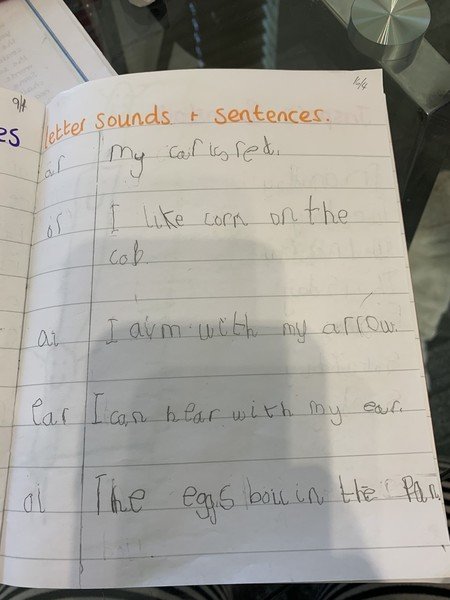 9/4
15/4
es
letter sounds + sentences.
ar My car is red.
or I like corn on the
cob.
ai I aim with my arrow.
ear I can hear with my ear.
oi The eggs boil in the Pan